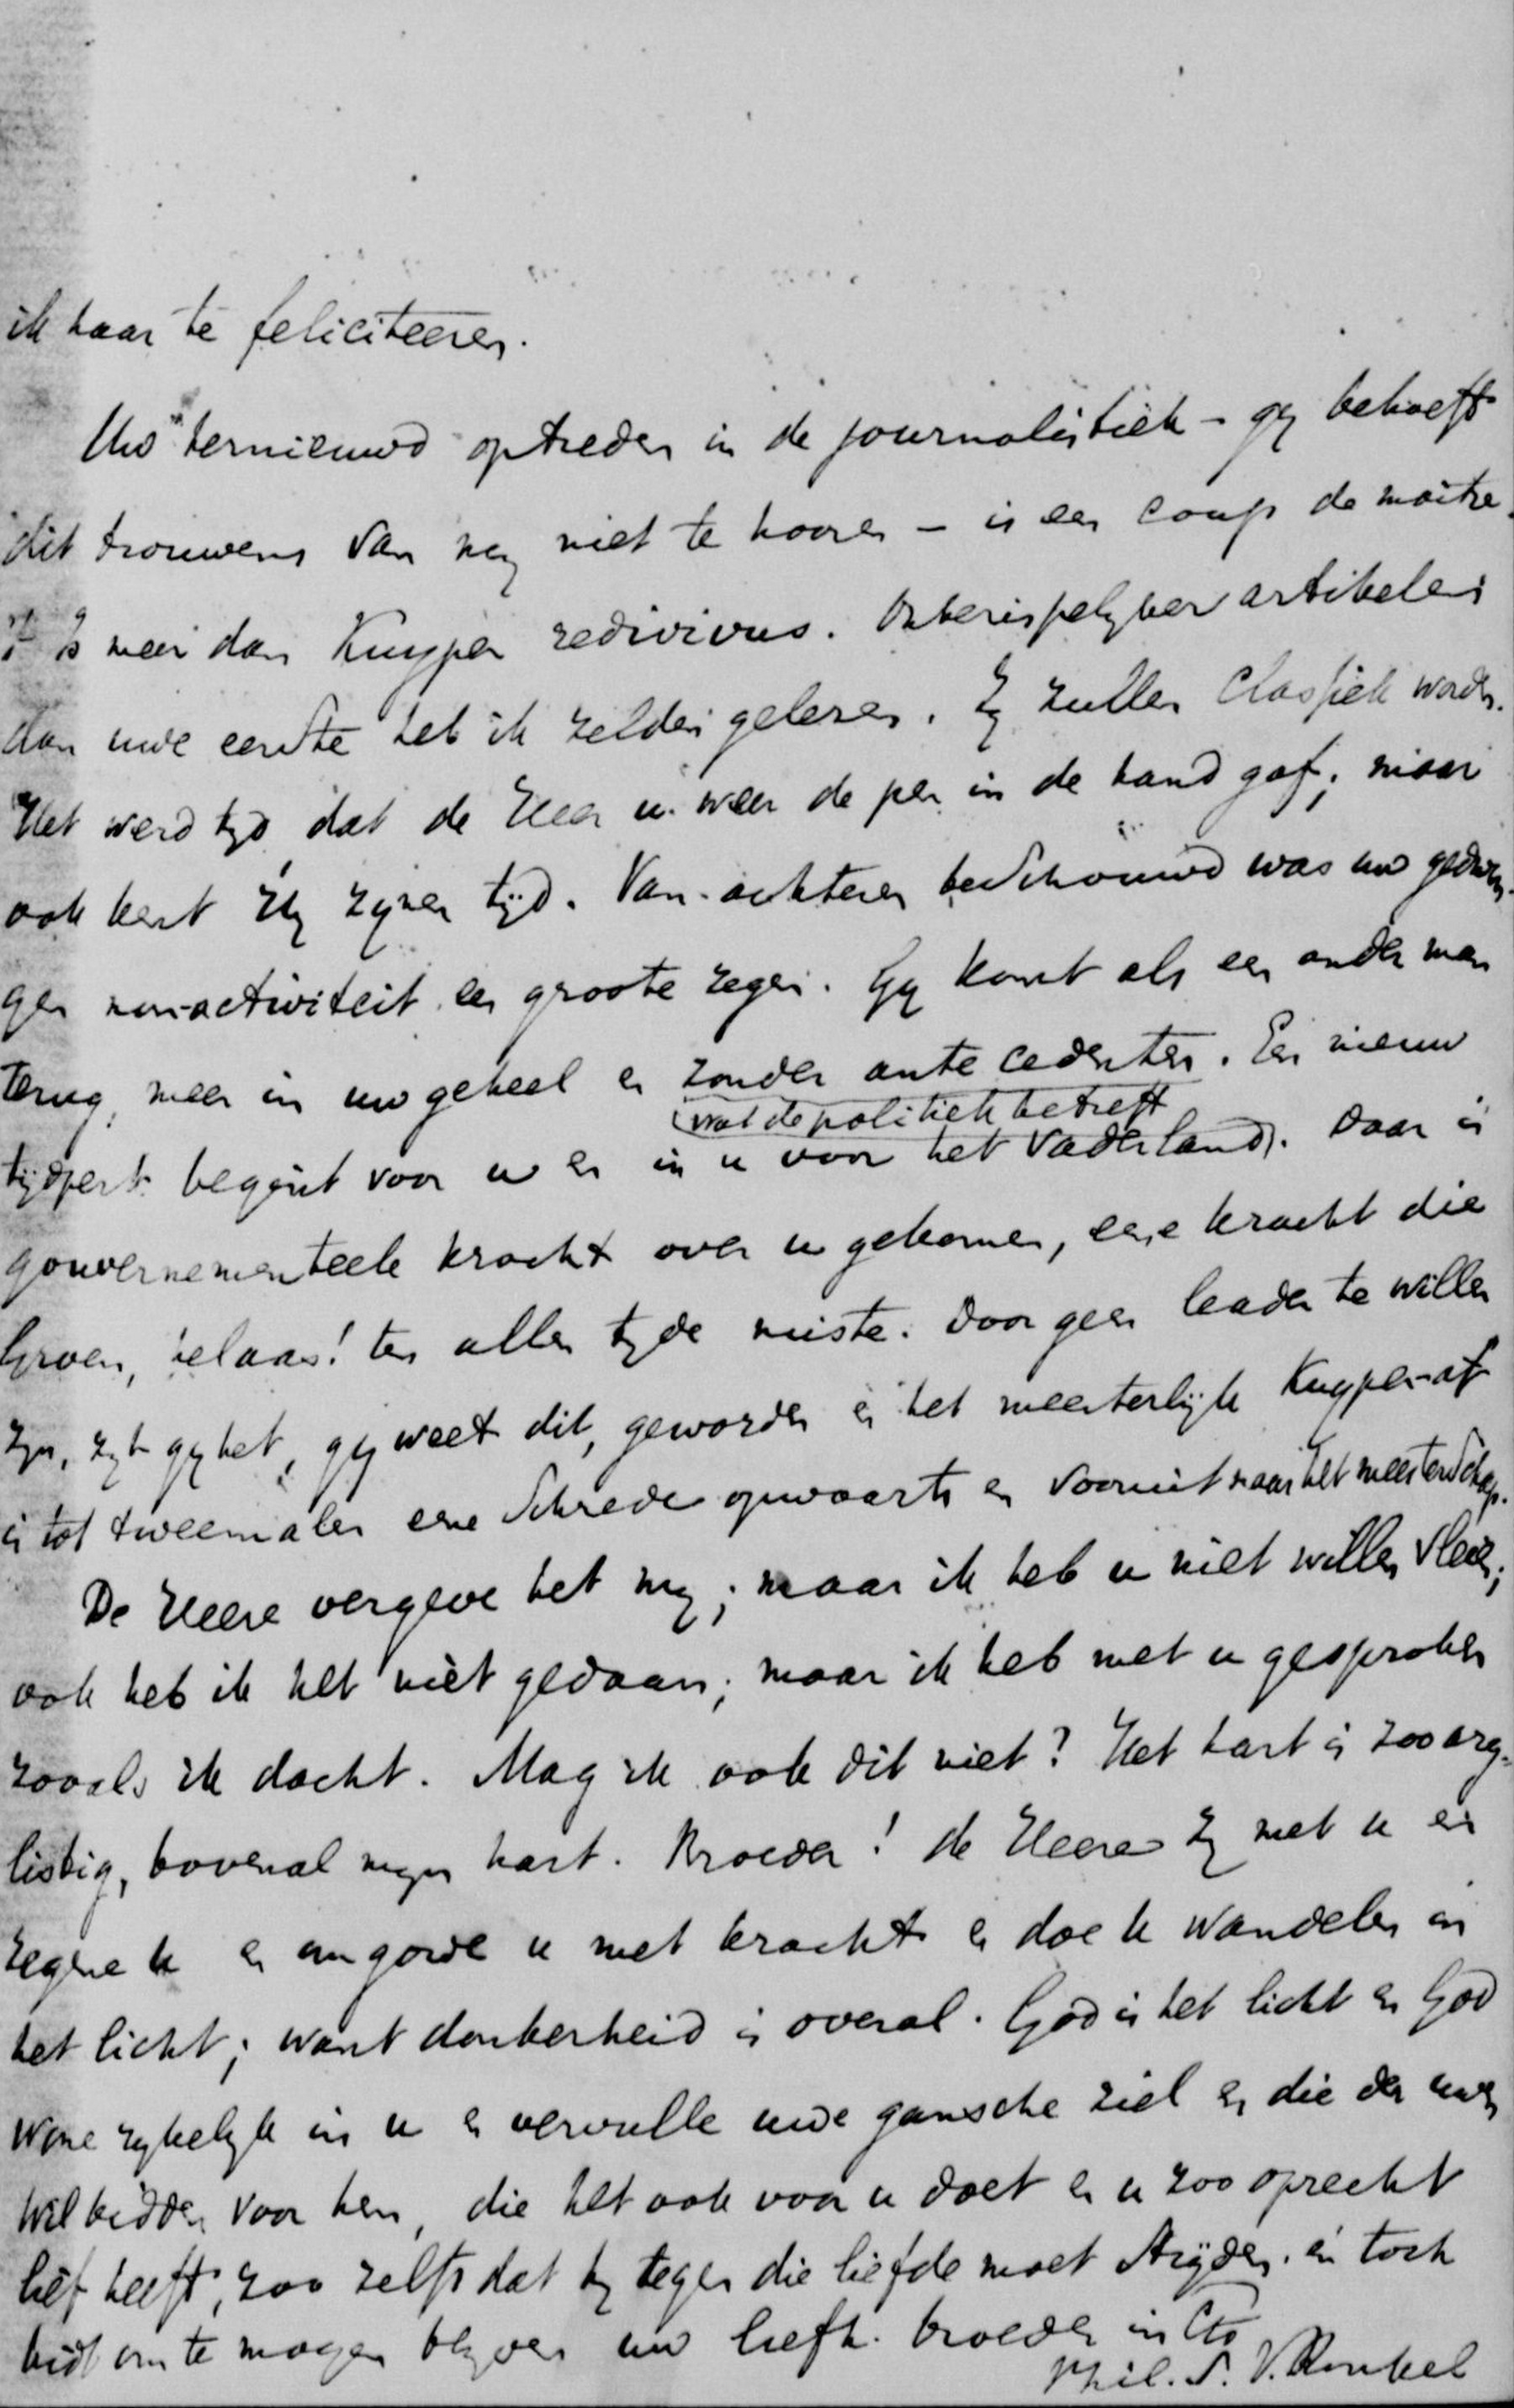 ik haar te feliciteeren.
Uw vernieuwd optreden in de journalistiek - gij behoeft
dit trouwens van mij niet te hooren - is een coup de maitre.
't Is meer dan Kuyper redivivus. Onberispelijker artikelen
dan uwe eerste heb ik zelden gelezen. Zij zullen classiek worden.
Het werd tijd dat de Heer u weer de pen in de hand gaf; maar
ook kent Hij zijnen tijd. Van achteren beschouwd was uw gedwon-
gen non-activiteit een groote zegen. Gij komt als een ander man
terug, meer in uw geheel en zonder antecedenten. Een nieuw
tijdperk begint voor u en in u voor het Vaderland. Daar is
(wat de politiek betreft)
gouvernementeele kracht over u gekomen, eene kracht die
Groen, helaas! ten allen tijde miste. Door geen leader te willen
zijn, zijt gij het, gij weet dit, geworden en het meesterlijke Kuyper-af
is tot tweemalen eene schrede opwaarts en vooruit naar het meesterschap.
De Heere vergeve het mij; maar ik heb u niet willen vleien;
ook heb ik het niet gedaan; maar ik heb met u gesproken
zooals ik dacht. Mag ik ook dit niet? Het hart is zoo arg-
listig, bovenal mijn hart. Broeder! de Heere zij met u en
zegene u en omgorde u met kracht en doe u wandelen in
het licht; want donkerheid is overal. God is het licht en God
wone rijkelijk in u en vervulle uwe gansche ziel en die der uwen
Wil bidden voor hem, die het ook voor u doet en u zoo oprecht
lief heeft, zoo zelfs dat hij tegen die liefde moet strijden en toch
bidt om te mogen blijven uw liefh. broeder in Cto
Phil. S. v. Ronkel